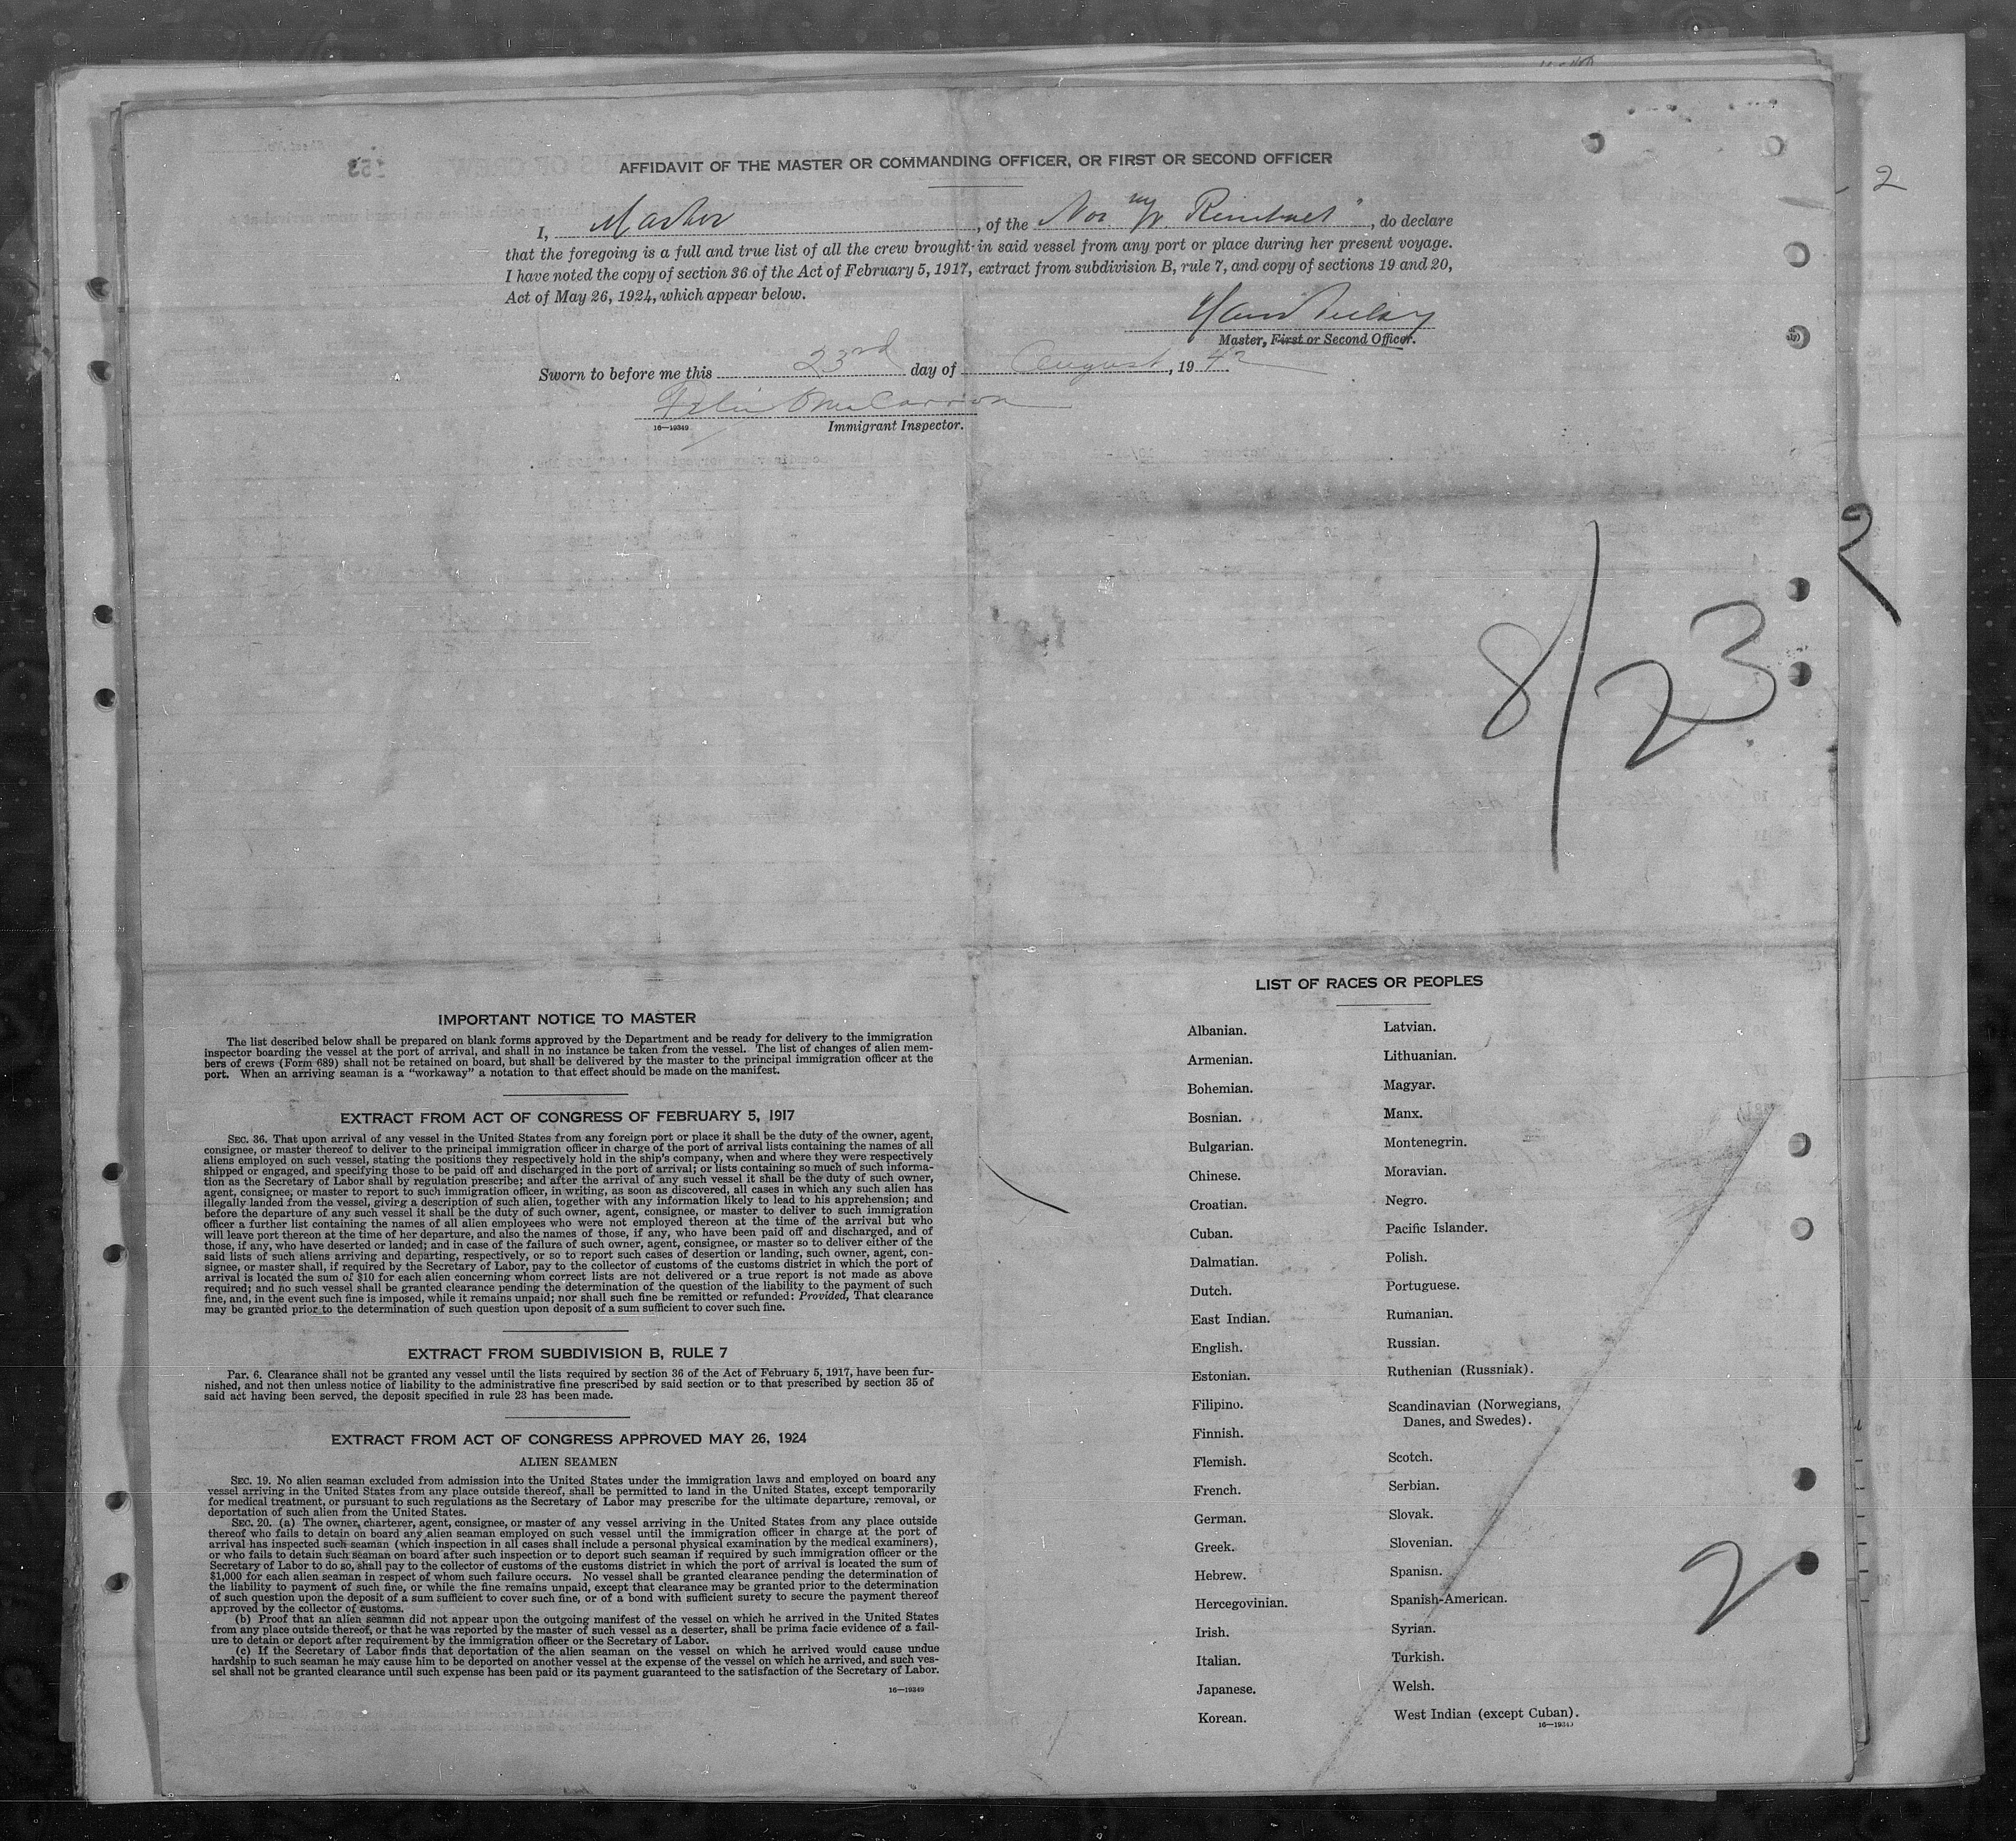 AFFIDAVIT OF THE MASTER OR COMMANDING OFFICER, OR FIRST OR SECOND OFFICER
I, Master, of the Nor. M/V. , do declare
that the foregoing is a full and true list of all the crew brought in said vessel from any port or place during her present voyage.
I have noted the copy of section 36 of the Act of February 5, 1917, extract from subdivision B, rule 7, and copy of sections 19 and 20,
Act of May 26, 1924, which appear below.
Master, First or Second Officer.
Sworn to before me this 23rd day of August, 1942
16—19349
Immigrant Inspector.
2
2
8/23
IMPORTANT NOTICE TO MASTER
The list described below shall be prepared on blank forms approved by the Department and be ready for delivery to the immigration
inspector boarding the vessel at the port of arrival, and shall in no instance be taken from the vessel. The list of changes of alien mem-
bers of crews (Form 689) shall not be retained on board, but shall be delivered by the master to the principal immigration officer at the
port. When an arriving seaman is a "workaway" a notation to that effect should be made on the manifest.
EXTRACT FROM ACT OF CONGRESS OF FEBRUARY 5, 1917
SEC. 36. That upon arrival of any vessel in the United States from any foreign port or place it shall be the duty of the owner, agent,
consignee, or master thereof to deliver to the principal immigration officer in charge of the port of arrival lists containing the names of all
aliens employed on such vessel, stating the positions they respectively hold in the ship's company, when and where they were respectively
shipped or engaged, and specifying those to be paid off and discharged in the port of arrival; or lists containing so much of such informa-
tion as the Secretary of Labor shall by regulation prescribe; and after the arrival of any such vessel it shall be the duty of such owner,
agent, consignee, or master to report to such immigration officer, in writing, as soon as discovered, all cases in which any such alien has
illegally landed from the vessel, giving a description of such alien, together with any information likely to lead to his apprehension; and
before the departure of any such vessel it shall be the duty of such owner, agent, consignee, or master to deliver to such immigration
officer a further list containing the names of all alien employees who were not employed thereon at the time of the arrival but who
will leave port thereon at the time of her departure, and also the names of those, if any, who have been paid off and discharged, and of
those, if any, who have deserted or landed; and in case of the failure of such owner, agent, consignee, or master so to deliver either of the
said lists of such aliens arriving and departing, respectively, or so to report such cases of desertion or landing, such owner, agent, con-
signee, or master shall, if required by the Secretary of Labor, pay to the collector of customs of the customs district in which the port of
arrival is located the sum of $10 for each alien concerning whom correct lists are not delivered or a true report is not made as above
required; and no such vessel shall be granted clearance pending the determination of the question of the liability to the payment of such
fine, and, in the event such fine is imposed, while it remains unpaid; nor shall such fine be remitted or refunded: Provided, That clearance
may be granted prior to the determination of such question upon deposit of a sum sufficient to cover such fine.
EXTRACT FROM SUBDIVISION B, RULE 7
PAR. 6. Clearance shall not be granted any vessel until the lists required by section 36 of the Act of February 5, 1917, have been fur-
nished, and not then unless notice of liability to the administrative fine prescribed by said section or to that prescribed by section 35 of
said act having been served, the deposit specified in rule 23 has been made.
EXTRACT FROM ACT OF CONGRESS APPROVED MAY 26, 1924
ALIEN SEAMEN
SEC. 19. No alien seaman excluded from admission into the United States under the immigration laws and employed on board any
vessel arriving in the United States from any place outside thereof, shall be permitted to land in the United States, except temporarily
for medical treatment, or pursuant to such regulations as the Secretary of Labor may prescribe for the ultimate departure, removal, or
deportation of such alien from the United States.
SEC. 20. (a) The owner, charterer, agent, consignee, or master of any vessel arriving in the United States from any place outside
thereof who fails to detain on board any alien seaman employed on such vessel until the immigration officer in charge at the port of
arrival has inspected such seaman (which inspection in all cases shall include a personal physical examination by the medical examiners),
or who fails to detain such seaman on board after such inspection or to deport such seaman if required by such immigration officer or the
Secretary of Labor to do so, shall pay to the collector of customs of the customs district in which the port of arrival is located the sum of
$1,000 for each alien seaman in respect of whom such failure occurs. No vessel shall be granted clearance pending the determination of
the liability to payment of such fine, or while the fine remains unpaid, except that clearance may be granted prior to the determination
of such question upon the deposit of a sum sufficient to cover such fine, or of a bond with sufficient surety to secure the payment thereof
approved by the collector of customs.
(b) Proof that an alien seaman did not appear upon the outgoing manifest of the vessel on which he arrived in the United States
from any place outside thereof, or that he was reported by the master of such vessel as a deserter, shall be prima facie evidence of a fail-
ure to detain or deport after requirement by the immigration officer or the Secretary of Labor.
(c) If the Secretary of Labor finds that deportation of the alien seaman on the vessel on which he arrived would cause undue
hardship to such seaman he may cause him to be deported on another vessel at the expense of the vessel on which he arrived, and such ves-
sel shall not be granted clearance until such expense has been paid or its payment guaranteed to the satisfaction of the Secretary of Labor.
16—19349
LIST OF RACES OR PEOPLES
Albanian.
Armenian.
Bohemian.
Bosnian.
Bulgarian.
Chinese.
Croatian.
Cuban.
Dalmatian.
Dutch.
East Indian.
English.
Estonian.
Filipino.
Finnish.
Flemish.
French.
German.
Greek.
Hebrew.
Hercegovinian.
Irish.
Italian.
Japanese.
Korean.
Latvian.
Lithuanian.
Magyar.
Manx.
Montenegrin.
Moravian.
Negro.
Pacific Islander.
Polish.
Portuguese.
Rumanian.
Russian.
Ruthenian (Russniak).
Scandinavian (Norwegians,
Danes, and Swedes).
Scotch.
Serbian.
Slovak.
Slovenian.
Spanish.
Spanish-American.
Syrian.
Turkish.
Welsh.
West Indian (except Cuban).
16—19349
2